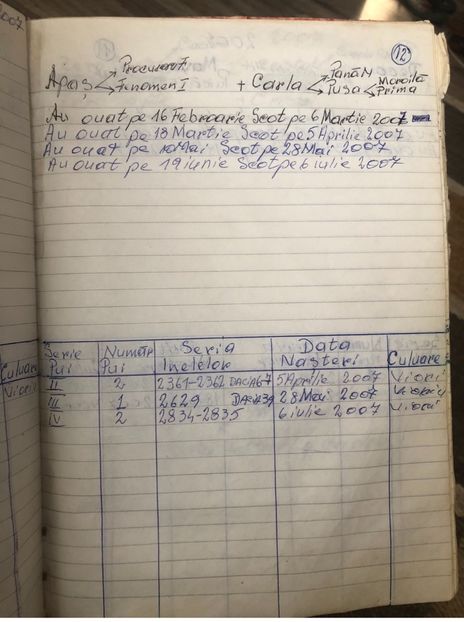 2007
12
Procurorul
Apaș Fenomen I + Carla Pană N Maroilă
Pușa Prima
Au ouat pe 16 Februarie Scot pe 6 Martie 2007
Au ouat pe 18 Martie Scot pe 5 Aprilie 2007
Au ouat pe 10 Mai Scot pe 28 Mai 2007
Au ouat pe 19 iunie Scot pe 6 iulie 2007
Serie Pui Număr Pui Seria Inelelor Data Nașteri Culuare
II 2 2361-2362 5 Aprilie 2007 Viorii
III 1 2629 28 Mai 2007 Viorii
IV 2 2834-2835 6 iulie 2007 Viorii
Culuare
Viorii